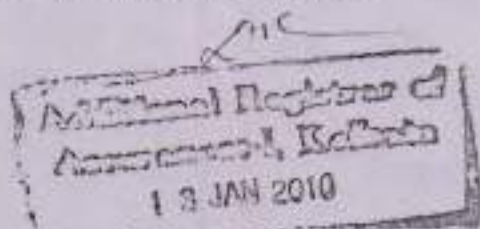 Additional Registrar of
Assurances-I, Kolkata
JAN 2010